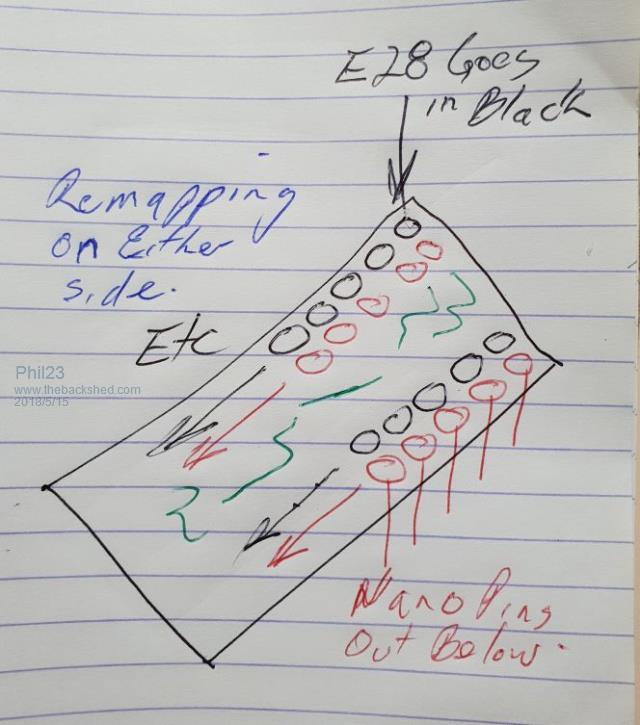 E28 Goes
in Black
Remapping
on Either
side.
Etc
Phil23
www.thebackshed.com
2018/5/15
Nano Pins
Out Below.